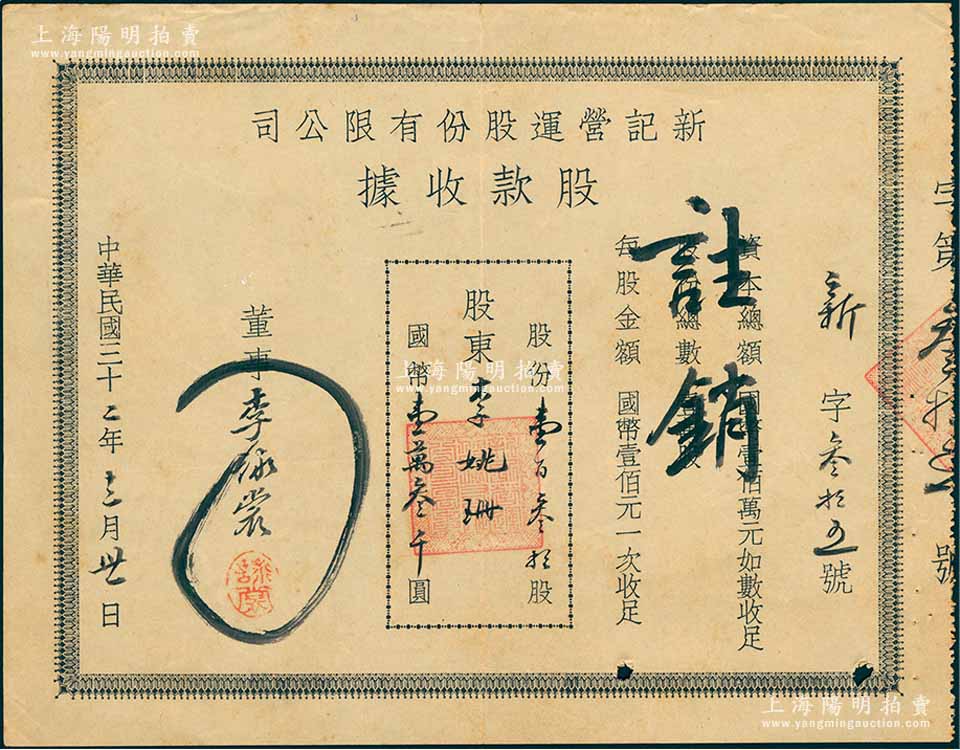 上海陽明拍賣
www.yangmingauction.com
新記營運股份有限公司
股款收據
字第叁拾五號
新字叁拾五號
資本總額國幣壹佰萬元如數收足
總數
每股金額國幣壹佰元一次收足
註銷
股份壹百叁拾股
股東李姚珊
國幣壹萬叁千圓
上海陽明拍賣
www.yangmingauction.com
董事李
中華民國三十二年十二月卅日
上海陽明拍賣
www.yangmingauction.com